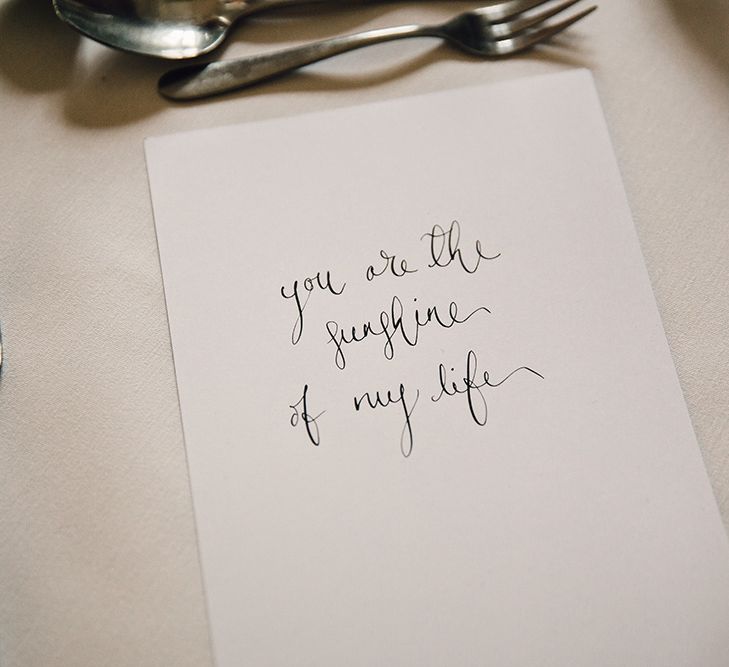 you are the
sunshine
of my life